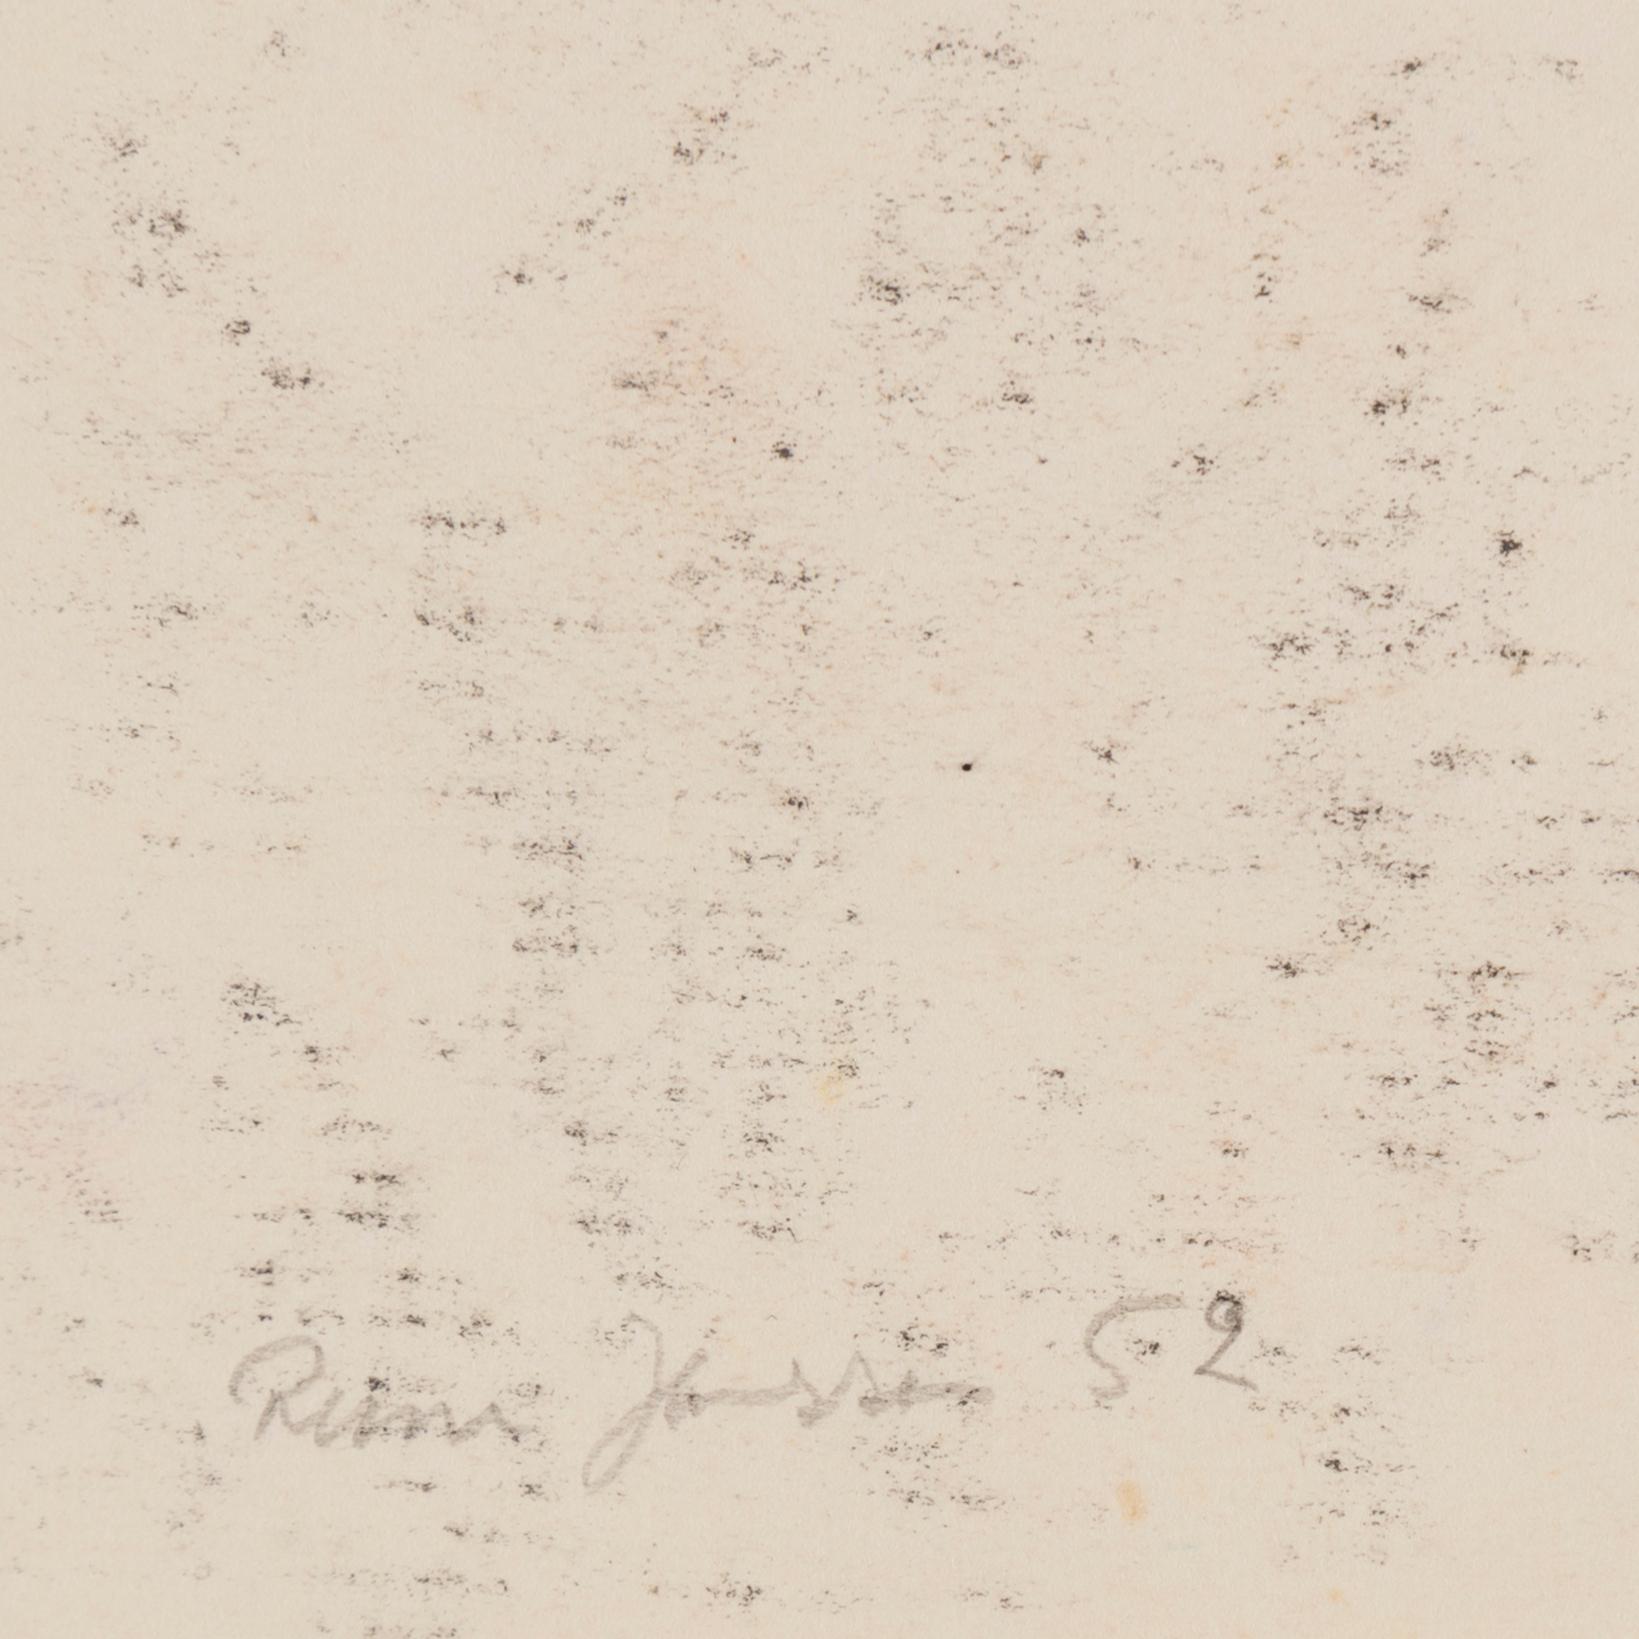 Rune Jansson 52